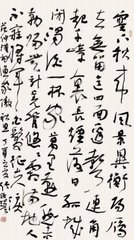 塞下秋来風景異衡陽雁
去無留意四面邊聲連角
起千嶂裏長煙落日孤城
閉濁酒一杯家萬里燕然
未勒歸無計羌管悠悠霜滿地
人不寐將軍白髮征夫淚
范仲淹詞漁家傲秋思丁亥